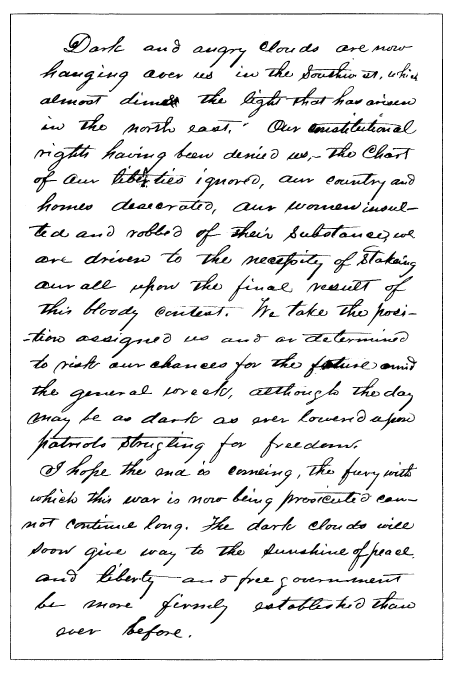 Dark and angry clouds are now
hanging over us in the Southwest, which
almost dims the light that has arisen
in the north east. Our constitutional
rights having been denied us,- the Chart
of our liberties ignored, our country and
homes desecrated, our women insul-
ted and robbed of their substance, we
are driven to the necessity of stakeing
our all upon the final result of
this bloody contest. We take the posi-
-tion assigned us and ar determined
to risk our chances for the future amid
the general wreck, although the day
may be as dark as ever lowered upon
patriots strugling for freedom.
I hope the end is comeing, the fury with
which this war is now being prosecuted can-
not continue long. The dark clouds will
soon give way to the sunshine of peace
and liberty and free government
be more firmly established than
ever before.